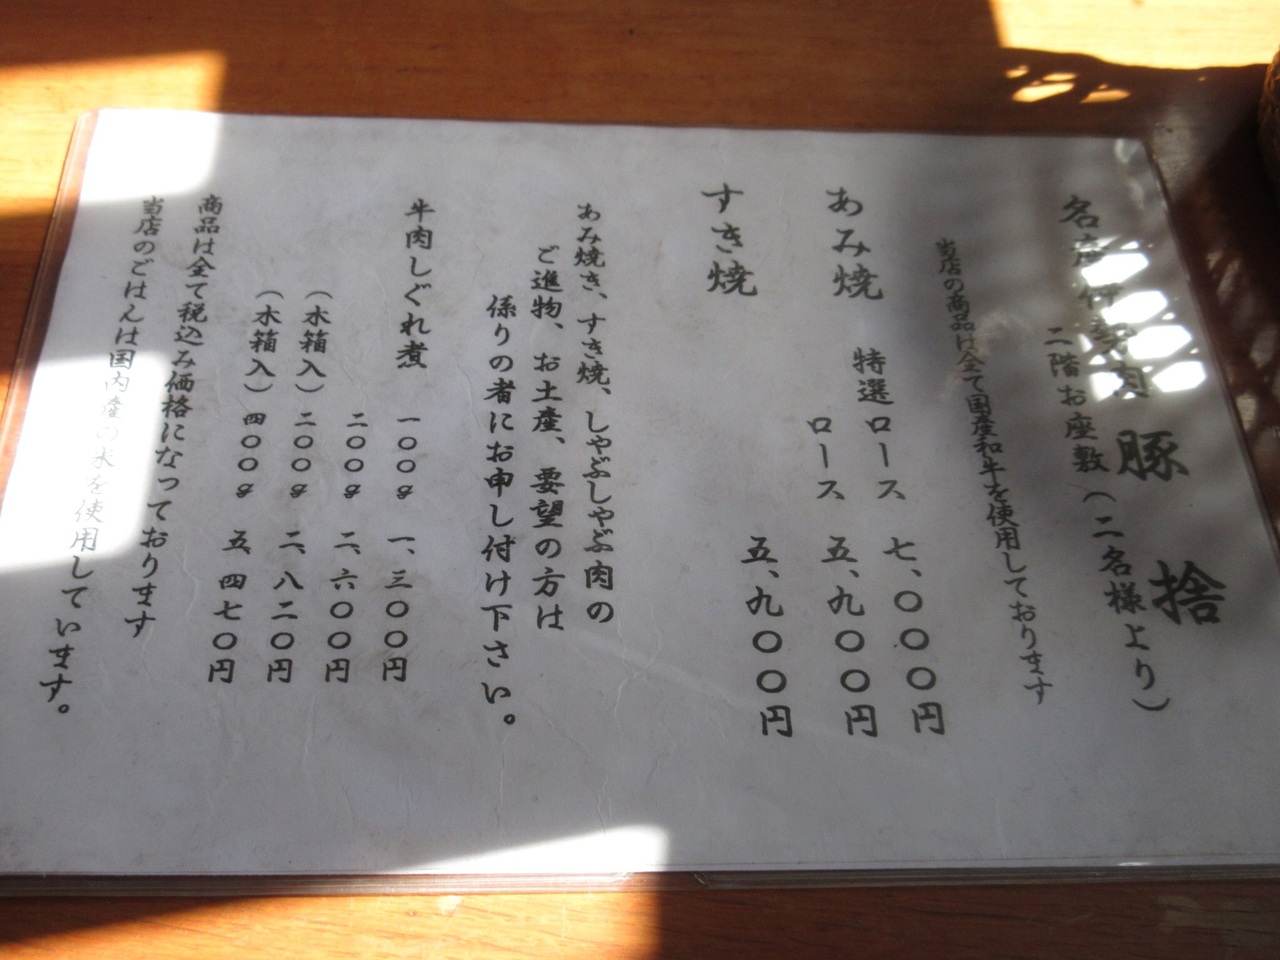 名産伊勢肉 豚捨
二階お座敷(二名様より)
当店の商品は全て国産和牛を使用しております
あみ焼 特選ロース 七、〇〇〇円
ロース 五、九〇〇円
すき焼 五、九〇〇円
あみ焼き、すき焼、しゃぶしゃぶ肉の
ご進物、お土産、要望の方は
係りの者にお申し付け下さい。
牛肉しぐれ煮 一〇〇g 一、三〇〇円
二〇〇g 二、六〇〇円
(木箱入) 二〇〇g 二、八二〇円
(木箱入) 四〇〇g 五、四七〇円
商品は全て税込み価格になっております
当店のごはんは国内産の米を使用しています。